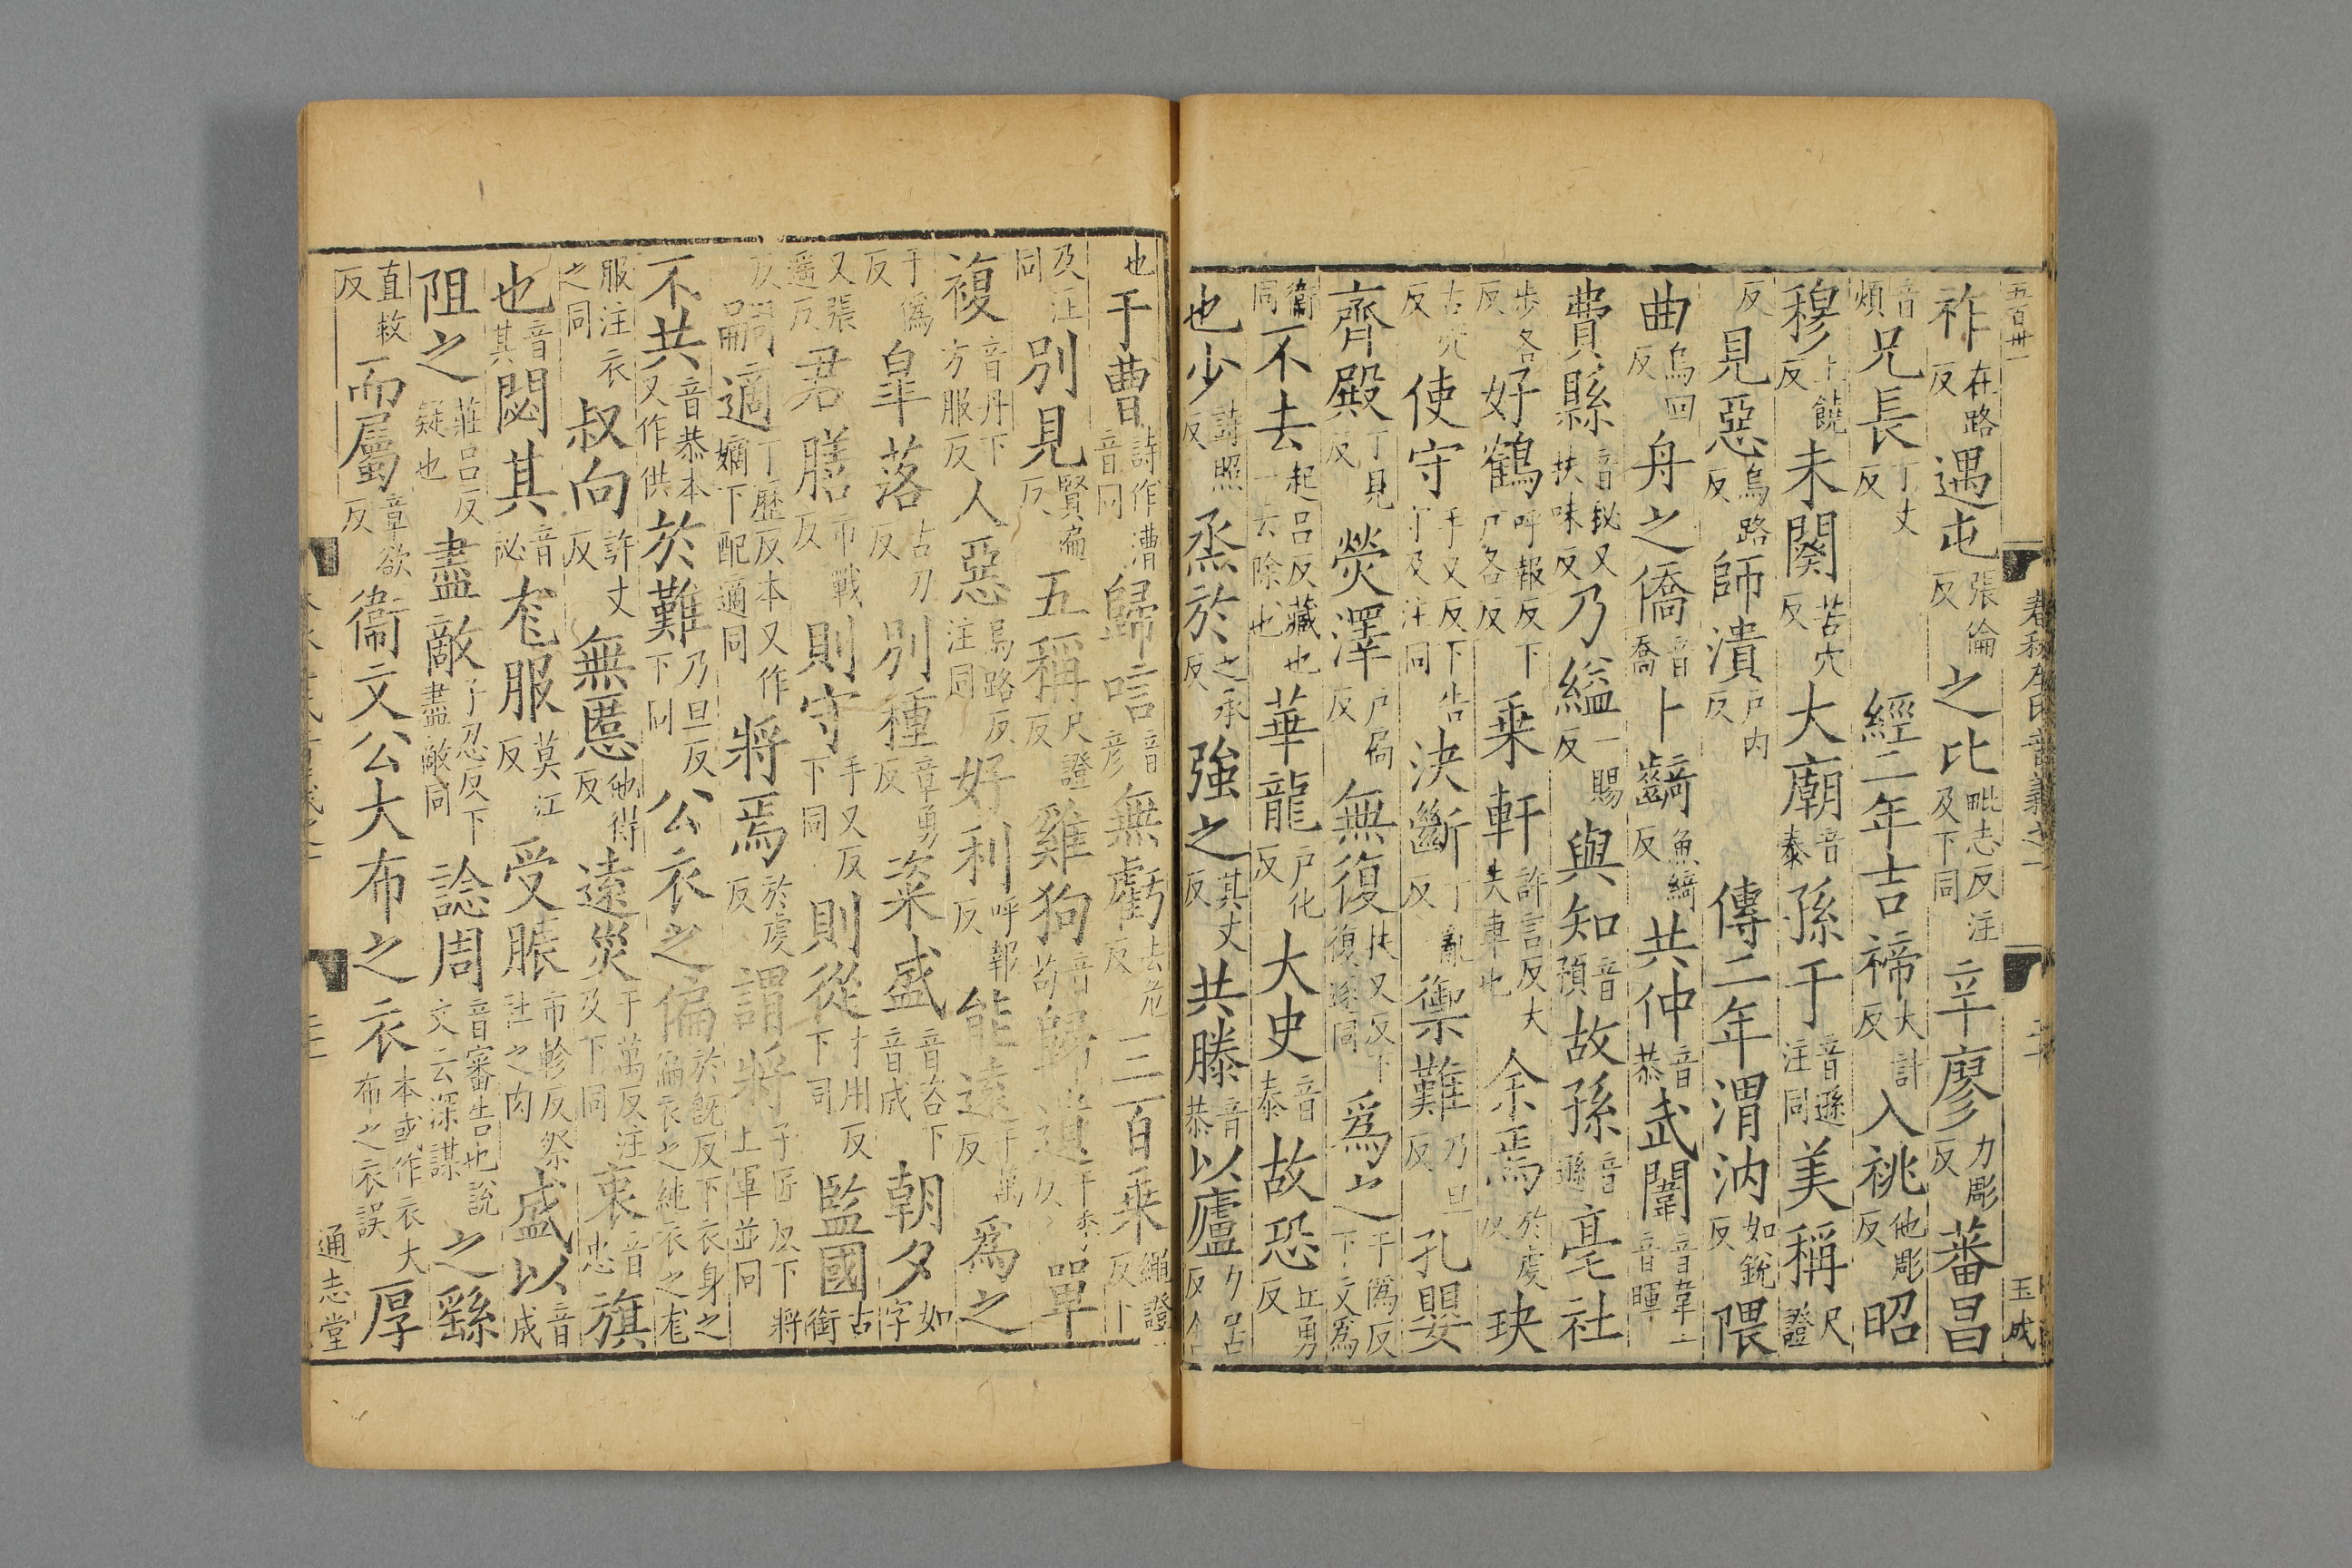 五百卅一 春秋左氏音義之一 玉成
祚在路反遇屯張倫反之比毗志反注及下同辛廖力彫反蕃昌
音煩兄長丁丈反 經二年吉禘大計反入祧他彫反昭
穆上饒反未闋苦穴反大廟音泰孫于音遜注同美稱尺證
反見惡烏路反師潰户内反 傳二年渭汭如銳反隈
曲烏回反舟之僑音喬卜齮魚綺反共仲音恭武闈音韋一音暉
費縣音祕又扶味反乃縊一賜反與知音預故孫音遜亳社
步各反好鶴呼報反下户各反乘軒許言反大夫車也余焉於虔反玦
古穴反使守手又反下守及注同決斷丁亂反禦難乃旦反孔嬰
齊殿丁見反熒澤户扃反無復扶又反下復逐同爲之于僞反下文爲
衞同不去起吕反藏也一云除也華龍户化反大史音泰故恐丘勇反
也少詩照反烝於之承反強之其丈反共滕音恭以廬力居反
也于曹詩作漕音同歸唁音彦無虧去危反三百乘繩證反下
及注同别見賢徧反五稱尺證反雞狗音苟歸遺于季反單
複音丹下方服反人惡烏路反注同好利呼報反能遠于萬反爲之
于僞反皐落古刀反别種章勇反粢盛音咨下音成朝夕如字
又張遥反君膳市戰反則守手又反下同則從才用反下同監國古銜
反嗣適丁歷反本又作嫡下配適同將焉於虔反謂將子匠反下將上軍並同
不共音恭本又作供於難乃旦反下同公衣之偏於旣反下衣身之偏衣之純衣之尨
服注衣之同叔向許丈反無慝他得反遠災于萬反注及下同衷音忠旗
也音其閟其音祕尨服莫江反受脤市軫反祭社之肉盛以音成
阻之莊吕反疑也盡敵子忍反下盡敵同諗周音審告也說文云深謀之繇
直救反而屬章欲反衞文公大布之衣本或作衣大布之衣誤厚
通志堂